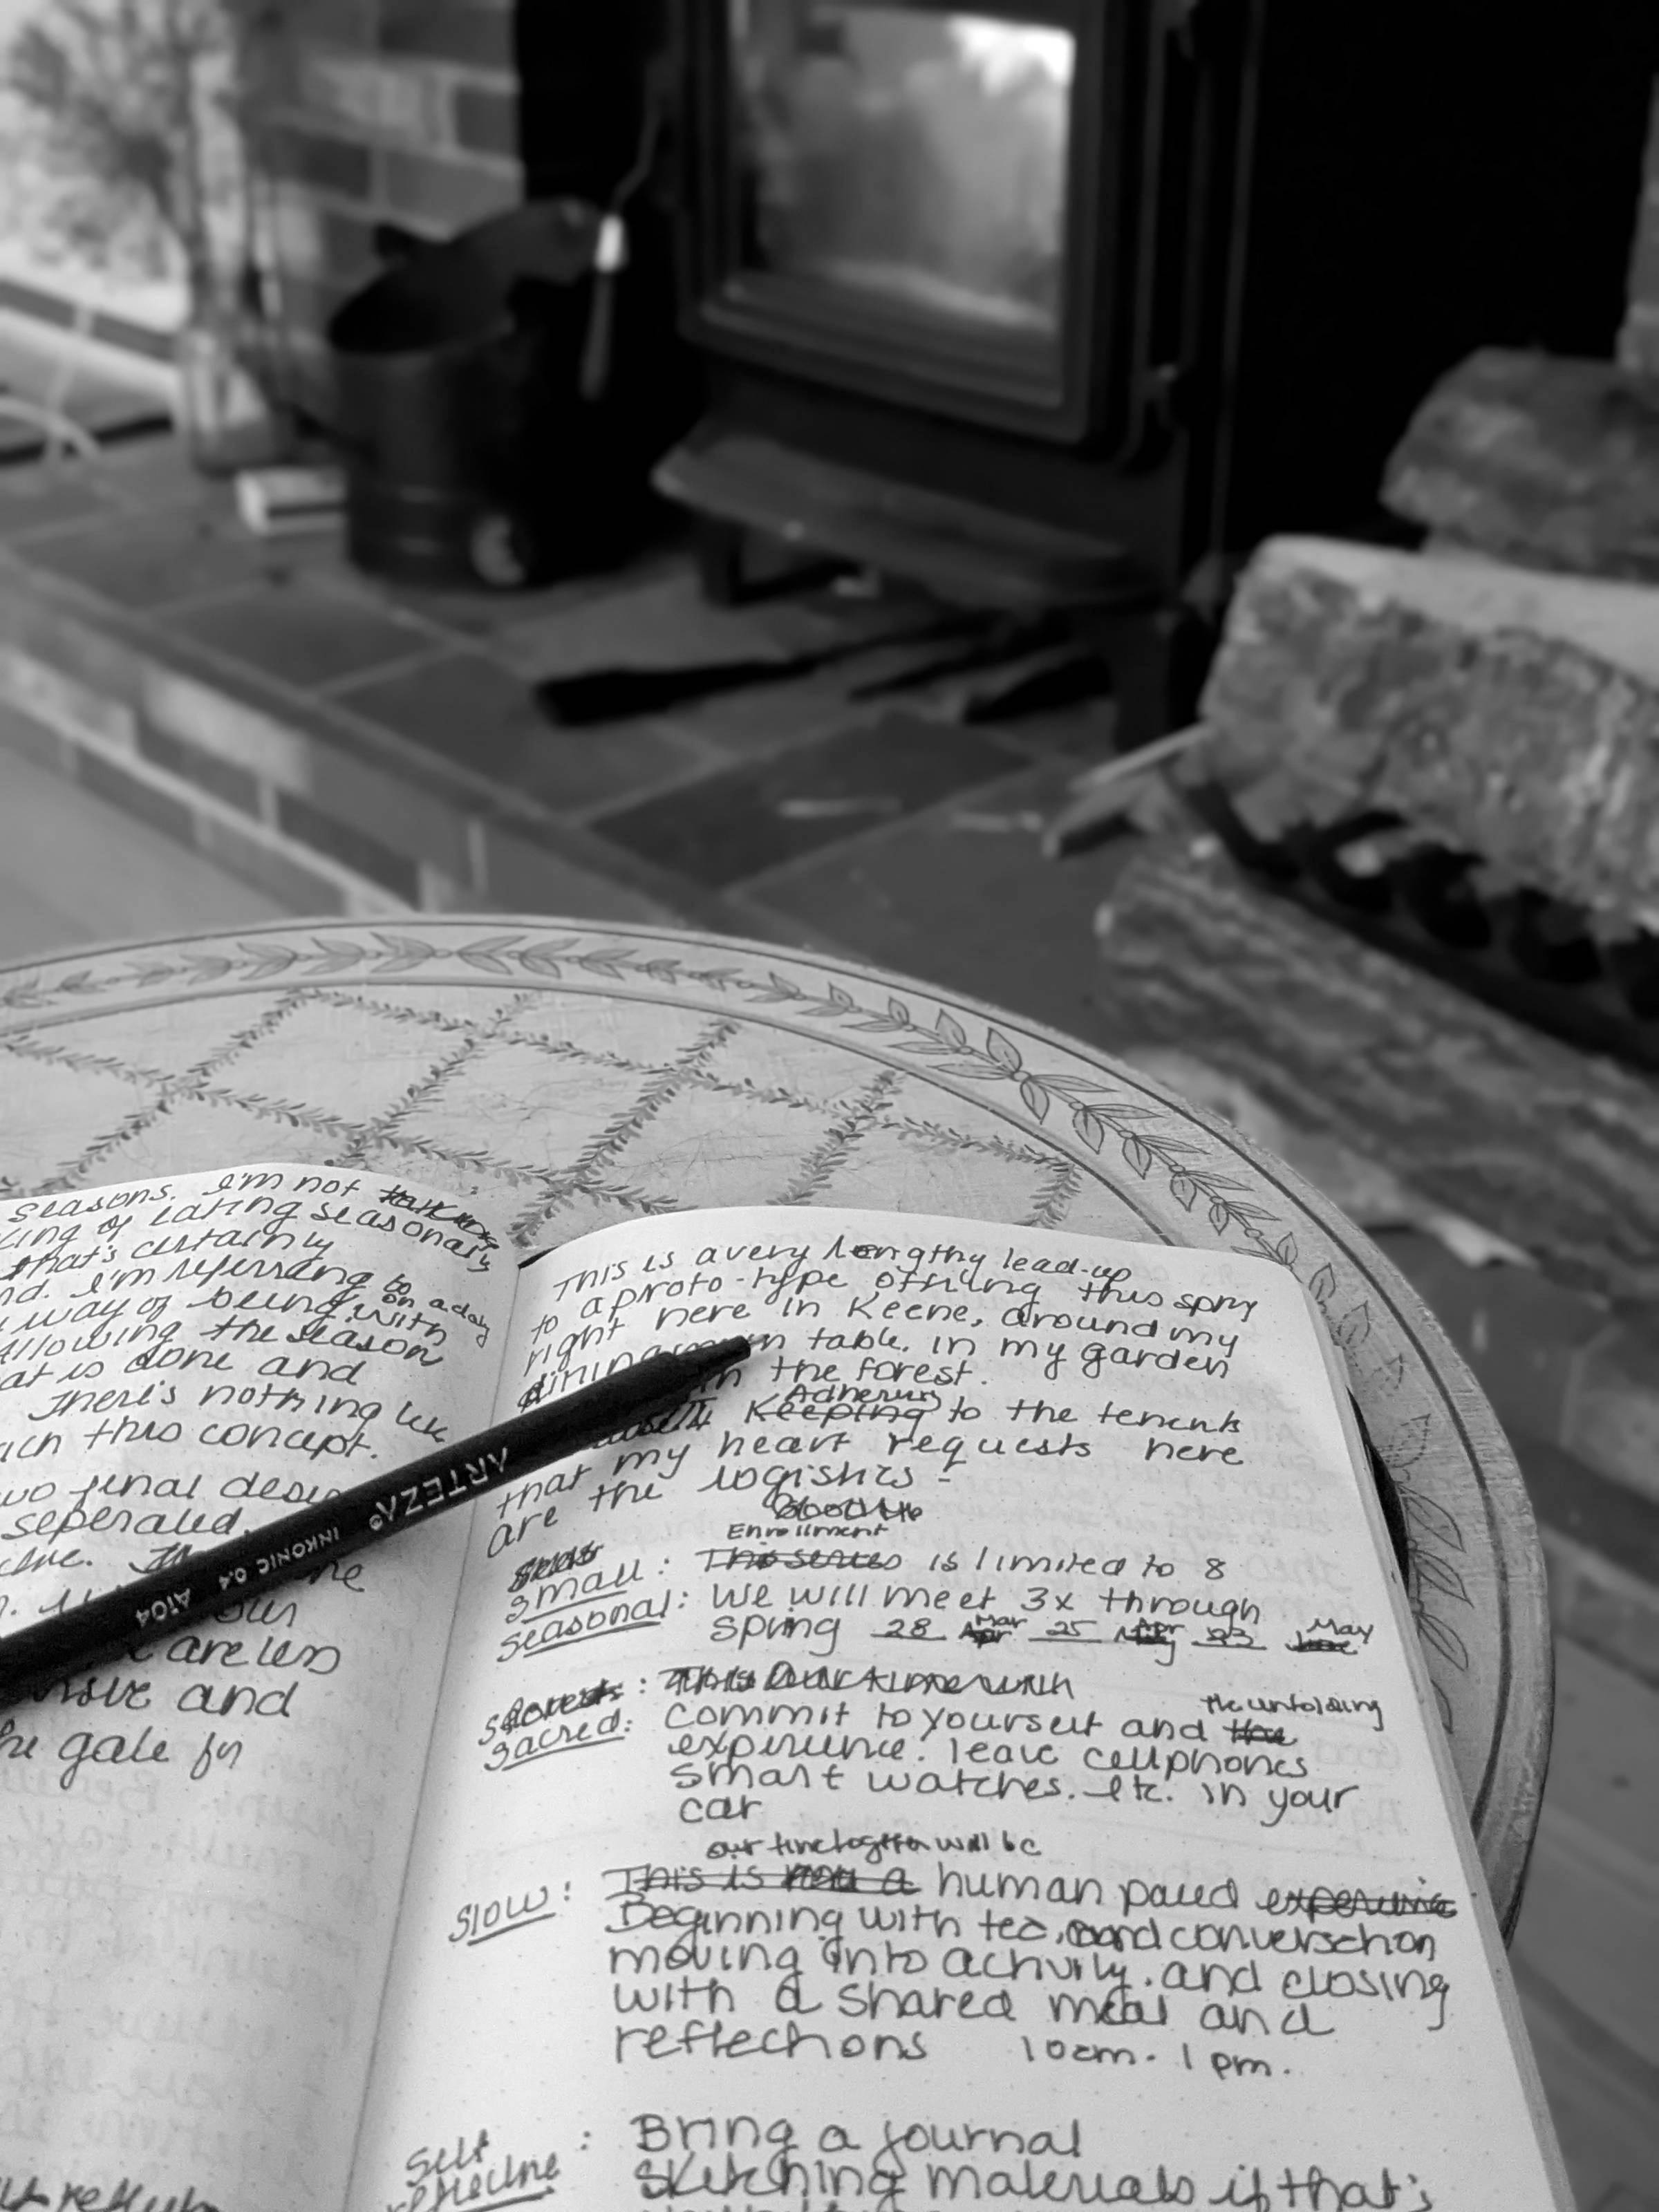 seasons. I'm not
ing of eating seasonally
that's certainly
nd. I'm referring to
way of being with on a day
Allowing the season
at is done and
There's nothing
ach this concept.
wo final
seperated.
are less
and
he gate for
This is a very lengthy lead-up
to a proto-type offering this spring
right here in Keene, around my
dining table, in my garden
in the forest.
Adhering
Keeping to the tenents
that my heart requests here
are the logistics -
Enrollment
Small: This series is limited to 8
Seasonal: We will meet 3x through
Mar Apr May
Spring 28 Apr 25 May 23 June
Sacred: Commit to yourself and the the unfolding
experience. leave cellphones
smart watches. etc. in your
car
our time together will be
Slow: This is not a human paced experience
Beginning with tea, and conversation
moving into activity. and closing
with a shared meal and
reflections 10am - 1pm.
Self reflective: Bring a journal
Sketching materials if that's
ARTEZA® INKONIC 0.4 Ai04